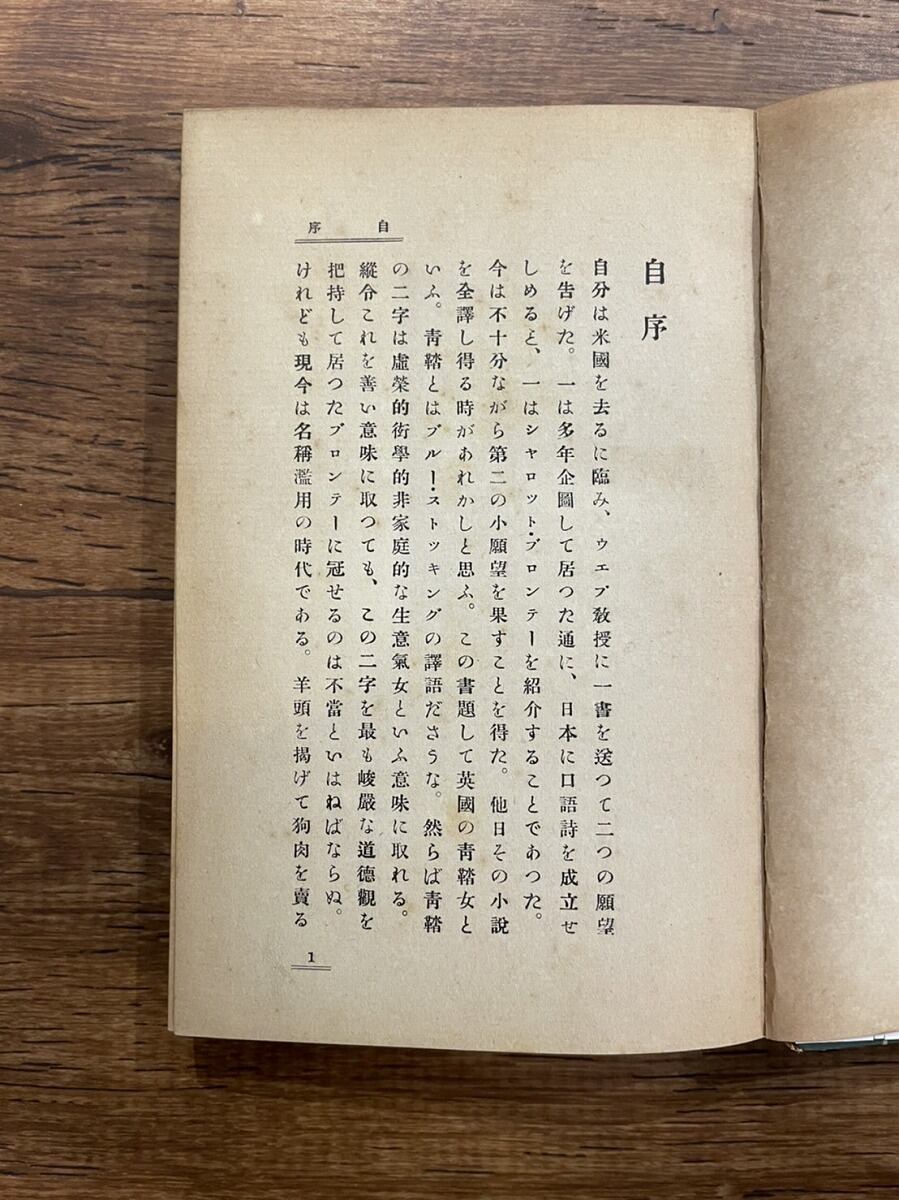 自序
自序
自分は米國を去るに臨み、ウエブ敎授に一書を送つて二つの願望
を告げた。一は多年企圖して居つた通に、日本に口語詩を成立せ
しめると、一はシヤロツト・ブロンテーを紹介することであつた。
今は不十分ながら第二の小願望を果すことを得た。他日その小說
を全譯し得る時があれかしと思ふ。この書題して英國の靑鞜女と
いふ。靑鞜とはブルー・ストッキングの譯語ださうな。然らば靑鞜
の二字は虛榮的衒學的非家庭的な生意氣女といふ意味に取れる。
縱令これを善い意味に取つても、この二字を最も峻嚴な道德觀を
把持して居つたブロンテーに冠せるのは不當といはねばならぬ。
けれども現今は名稱濫用の時代である。羊頭を揭げて狗肉を賣る
1